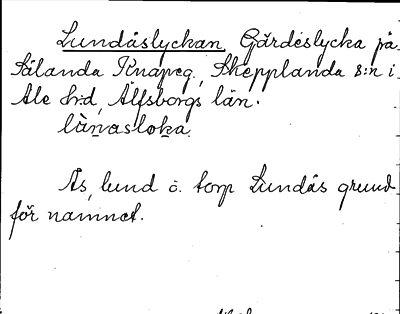 Lundåslyckan, Gärdeslycka på
Sålanda Knapeg., Skepplanda s:n i
Ale h:d, Älfsborgs län.
lànasloka.
Ås, lund o. torp Lundås grund
för namnet.